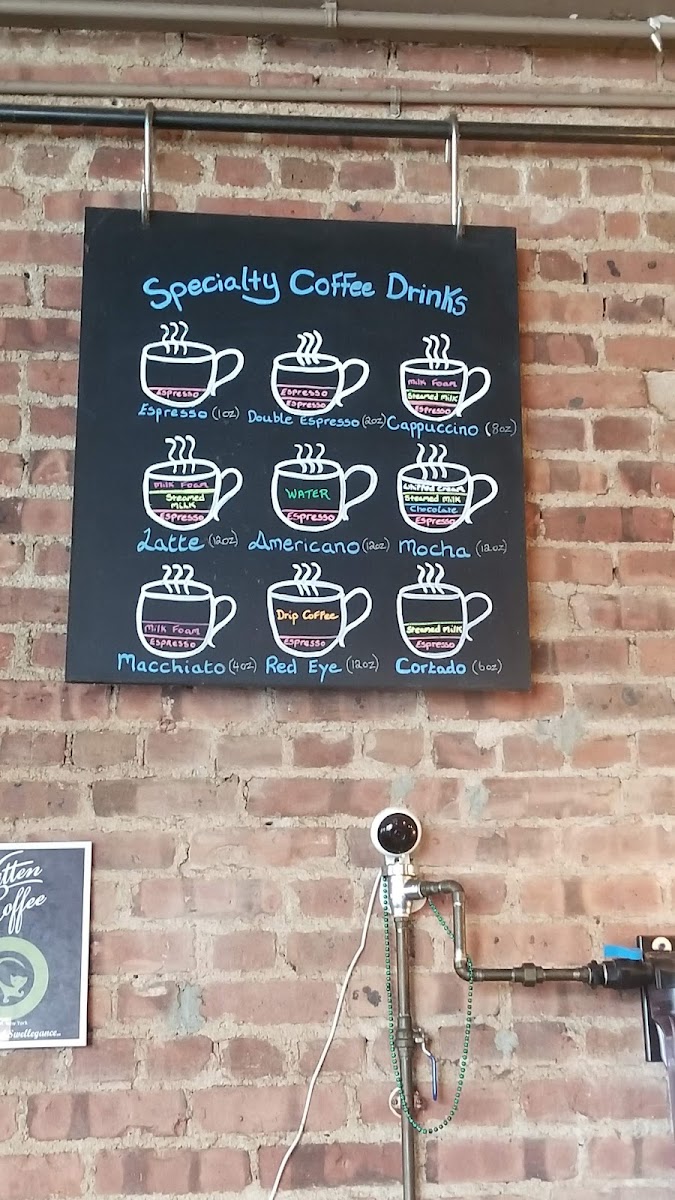 Specialty Coffee Drinks
Espresso
Espresso (1oz)
Espresso
Espresso
Double Espresso (2oz)
Milk Foam
Steamed Milk
Espresso
Cappuccino (8oz)
Milk Foam
Steamed
Milk
Espresso
Latte (12oz)
WATER
Espresso
Americano (12oz)
Whipped Cream
Steamed Milk
Chocolate
Espresso
Mocha (12oz)
Milk Foam
Espresso
Macchiato (4oz)
Drip Coffee
Espresso
Red Eye (12oz)
Steamed Milk
Espresso
Cortado (6oz)
offee
York
Swellegance